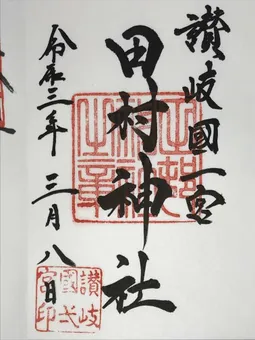 讃岐國一宮
田村神社
令和三年三月八日
田村神社之章
讃岐國弌宮印